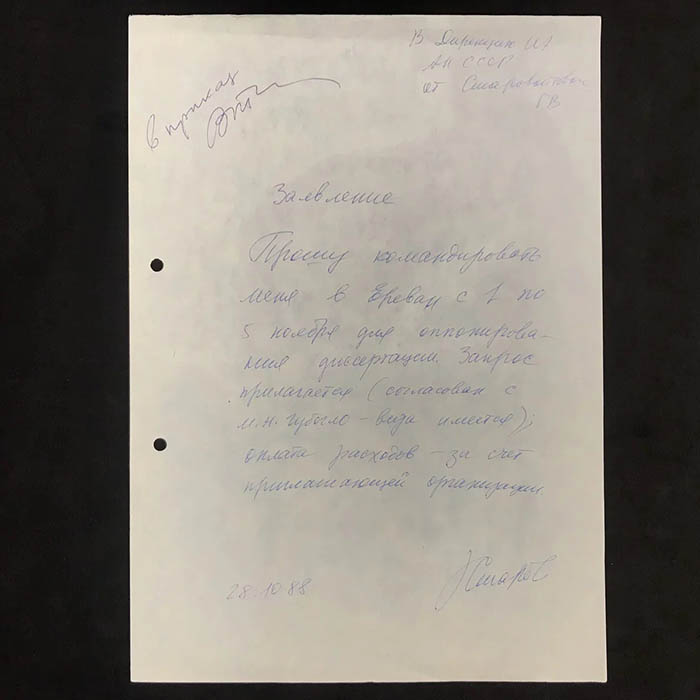 В Дирекцию ИЭ
АН СССР
от Старовойтовой
ГВ
в приказ
Заявление
Прошу командировать
меня в Ереван с 1 по
5 ноября для оппонирова-
ния диссертации. Запрос
прилагается (согласован с
М.Н. Губогло – виза имеется);
оплата расходов – за счет
приглашающей организации
28.10.88